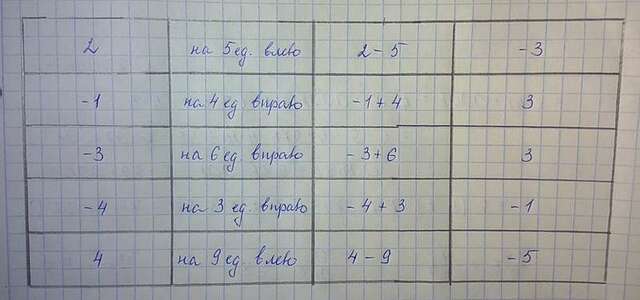 2 на 5 ед. влево 2 - 5 -3
-1 на 4 ед. вправо -1 + 4 3
-3 на 6 ед. вправо -3 + 6 3
-4 на 3 ед. вправо -4 + 3 -1
4 на 9 ед. влево 4 - 9 -5